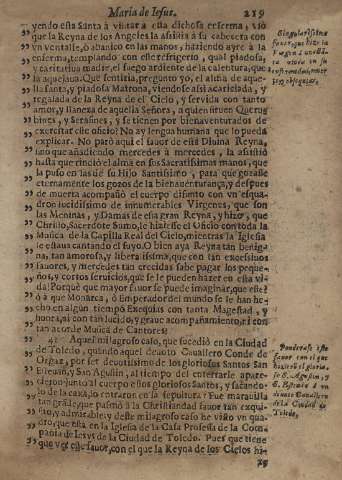 Maria de Iesus. 219
yendo esta Santa à visitar à esta dichosa enferma, viò
que la Reyna de los Angeles la assistia à su cabecera con
vn ventalle, ò abanico en las manos, haziendo ayre à la
enferma, templando con este refrigerio, qual piadosa,
y caritativa madre, el fuego ardiente de la calentura, que
la aquejava. Què sentiria, pregunto yo, el alma de aque-
lla santa, y piadosa Matrona, viendose assi acariciada, y
regalada de la Reyna de el Cielo, y servida con tanto
amor, y llaneza de aquella Señora, à quien sirven Queru
bines, y Serafines, y se tienen por bienaventurados de
exercitar este oficio? No ay lengua humana que lo pueda
explicar. No parò aqui el favor de esta Divina Reyna,
sino que añadiendo mercedes à mercedes, la assistiò
hasta que rindiò el alma en sus Sacratissimas manos, que
la puso en las de su Hijo Santissimo, para que gozasse
eternamente los gozos de la bienaventurança, y despues
de muerta acompañò el cuerpo difunto con vn esqua-
dron lucidissimo de innumerables Virgenes, que son
las Meninas, y Damas de esta gran Reyna, y hizo, que
Christo, Sacerdote Sumo, le hiziesse el Oficio con toda la
Musica de la Capilla Real del Cielo, mientras la Iglesia
le estava cantando el suyo. O bien aya Reyna tan benig-
na, tan amorosa, y liberalissima, que con tan excessivos
favores, y mercedes tan crecidas sabe pagar los peque-
ños, y cortos servicios, que se le pueden hazer en esta vi-
da! Porquè que mayor favor se puede imaginar, que este?
ò à què Monarca, ò Emperador del mundo se le han he-
cho en algun tiempo Exequias con tanta Magestad, y
honra, ni con tan lucido, y grave acompañamiento, ni con
tan acorde Musica de Cantores?
42 Aquel milagroso caso, que sucediò en la Ciudad
de Toledo, quando aquel devoto Cavallero Conde de
Orgaz, por ser devotissimo de los gloriosos Santos San
Estevan, y San Agustin, al tiempo del enterrarle apare-
cieron junto al cuerpo estos gloriosos Santos, y sacando-
lo de la caxa, lo entraron en la sepultura: Fue maravilla
tan grande, que pasmò à la Christiandad favor tan exqui-
sito, y admirable; y deste milagroso caso he visto vn qua-
dro, que està en la Iglesia de la Casa Professa de la Com-
pañia de Iesvs de la Ciudad de Toledo. Pues què tiene
que ver este favor, con el que la Reyna de los Cielos hi-
zo
Singularissimo
favor, que hizo la
Virgen
Ponderase este
favor con el que
hizieron el glorioso
S. Agustin, y
S. Estevan à un
devoto Cavallero
de la Ciudad de
Toledo.